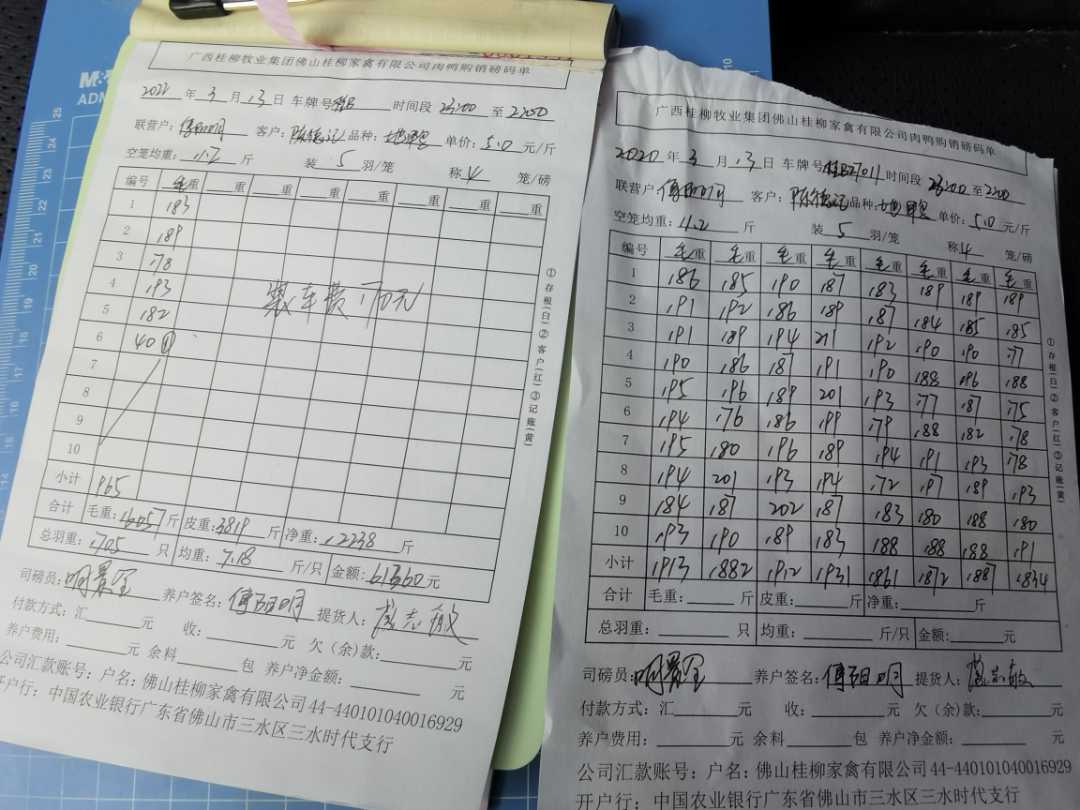 广西桂柳牧业集团佛山桂柳家禽有限公司肉鸭购销磅码单
2022年3月13日 车牌号 时间段23:00至2200
联营户: 客户: 品种: 单价:5.0元/斤
空笼均重: 斤 装5羽/笼 称4笼/磅
编号 毛重 重 重 重 重 重 重
1 183
2 189
3 178
4 193
5 182
6 40①
7
8
9
10
装车费170元
小计 965
合计 毛重:16057斤 皮重:3819斤 净重:12238斤
总羽重:1705只 均重:7.18斤/只 金额:61360元
司磅员: 养户签名: 提货人:
付款方式:汇 元 收: 元 欠(余)款: 元
养户费用: 元 余料 包 养户净金额: 元
公司汇款账号:户名:佛山桂柳家禽有限公司44-440101040016929
开户行:中国农业银行广东省佛山市三水区三水时代支行
①存根(白)②客户(红)③记账(黄)
广西桂柳牧业集团佛山桂柳家禽有限公司肉鸭购销磅码单
2020年3月13日 车牌号 时间段23:00至2200
联营户 客户: 品种: 单价:5.0元/斤
空笼均重:4.2斤 装5羽/笼 称4笼/磅
编号 毛重 毛重 毛重 毛重 毛重 毛重 毛重 毛重
1 186 185 190 187 183 189 189 189
2 191 192 186 189 187 184 185 185
3 191 189 194 201 192 190 190 177
4 190 186 187 191 190 188 196 188
5 195 196 189 201 193 177 187 175
6 194 176 186 199 179 188 182 178
7 195 180 196 189 194 191 193 178
8 194 201 193 194 172 197 189 193
9 184 187 202 187 183 180 188 180
10 193 190 189 183 188 188 188 191
小计 1913 1882 1912 1931 1861 1872 1887 1834
合计 毛重: 斤 皮重: 斤 净重: 斤
总羽重: 只 均重: 斤/只 金额: 元
司磅员: 养户签名: 提货人:
付款方式:汇 元 收: 元 欠(余)款: 元
养户费用: 元 余料 包 养户净金额: 元
公司汇款账号:户名:佛山桂柳家禽有限公司44-440101040016929
开户行:中国农业银行广东省佛山市三水区三水时代支行
①存根(白)②客户(红)③记账(黄)